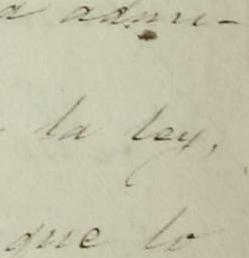 admi-
la ley,
que lo